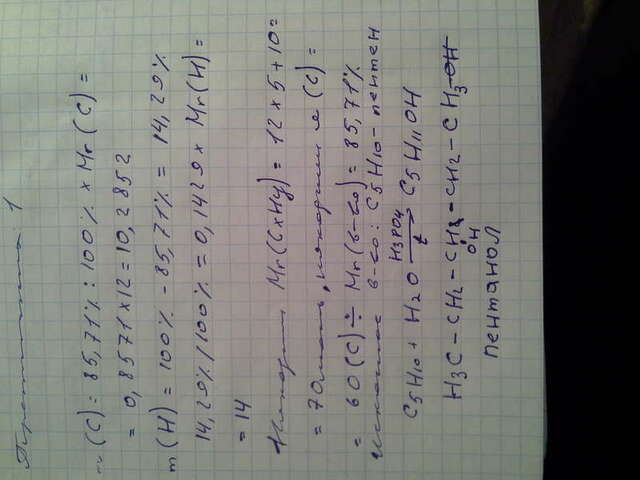 m(C) = 85,71% : 100% x Mr(C) =
= 0,8571 x 12 = 10,2852
m(H) = 100% - 85,71% = 14,29%
14,29% / 100% = 0,1429 x Mr(H) =
= 14
Mr(CxHy) = 12 x 5 + 10 =
= 70
(C) =
= 60(C) ÷ Mr(в-во) = 85,71%
Искомое в-во: C5H10 - пентен
C5H10 + H2O H3PO4 t → C5H11OH
H3C - CH2 - CH2 - CH2 - CH3
OH
пентанол